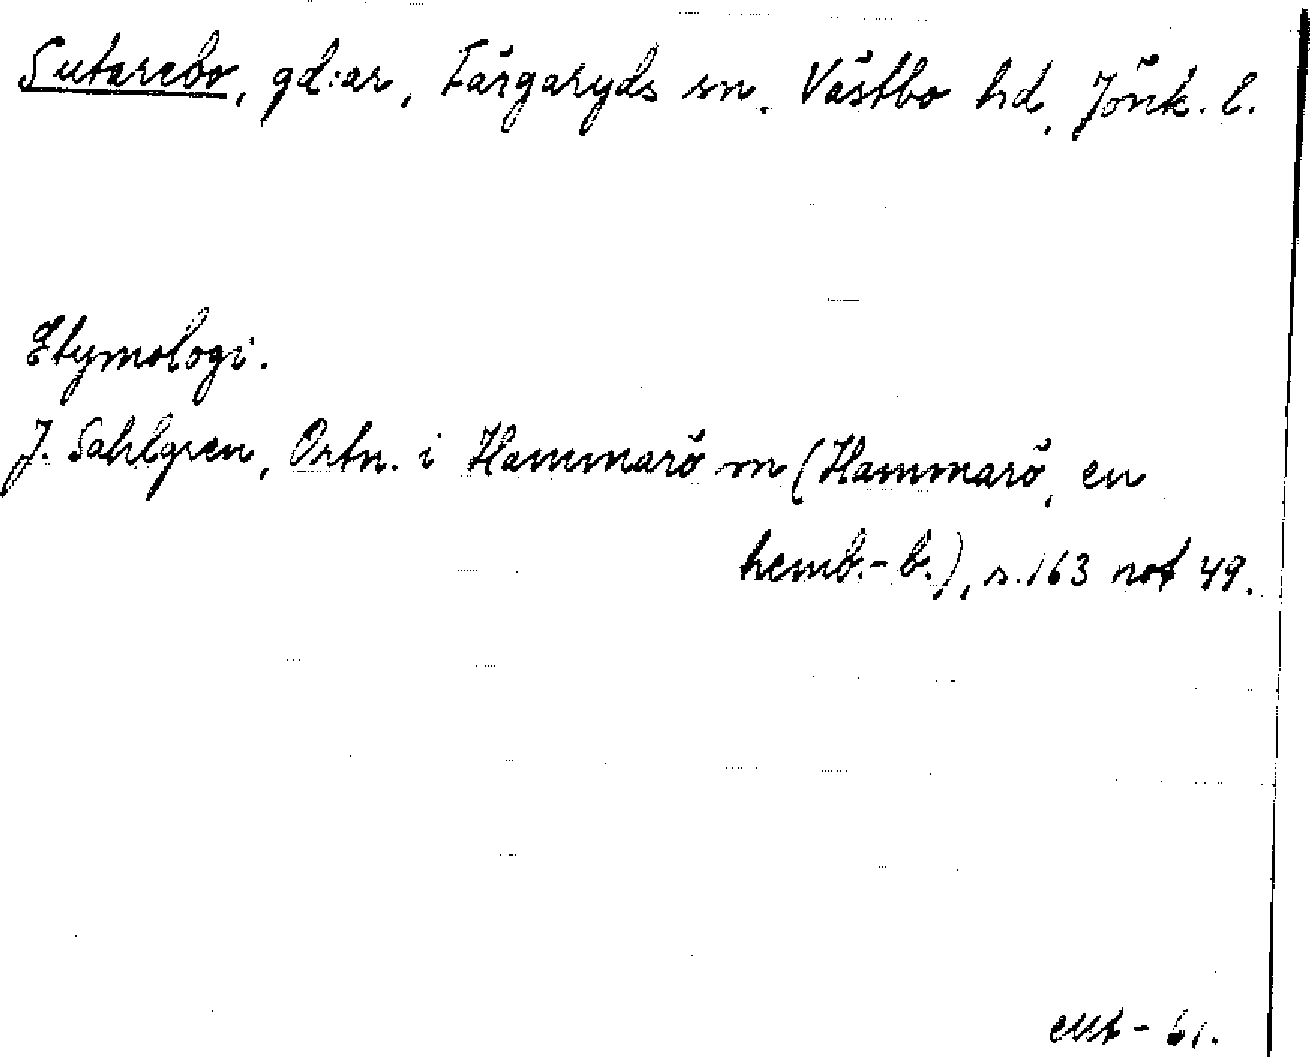 Sutarebo, gd:ar, Färgaryds sn, Västbo hd, Jönk. l.
Etymologi.
J. Sahlgren, Ortn. i Hammarö sn (Hammarö, en
hemb.-b.), s. 163 not 49.
- 61.